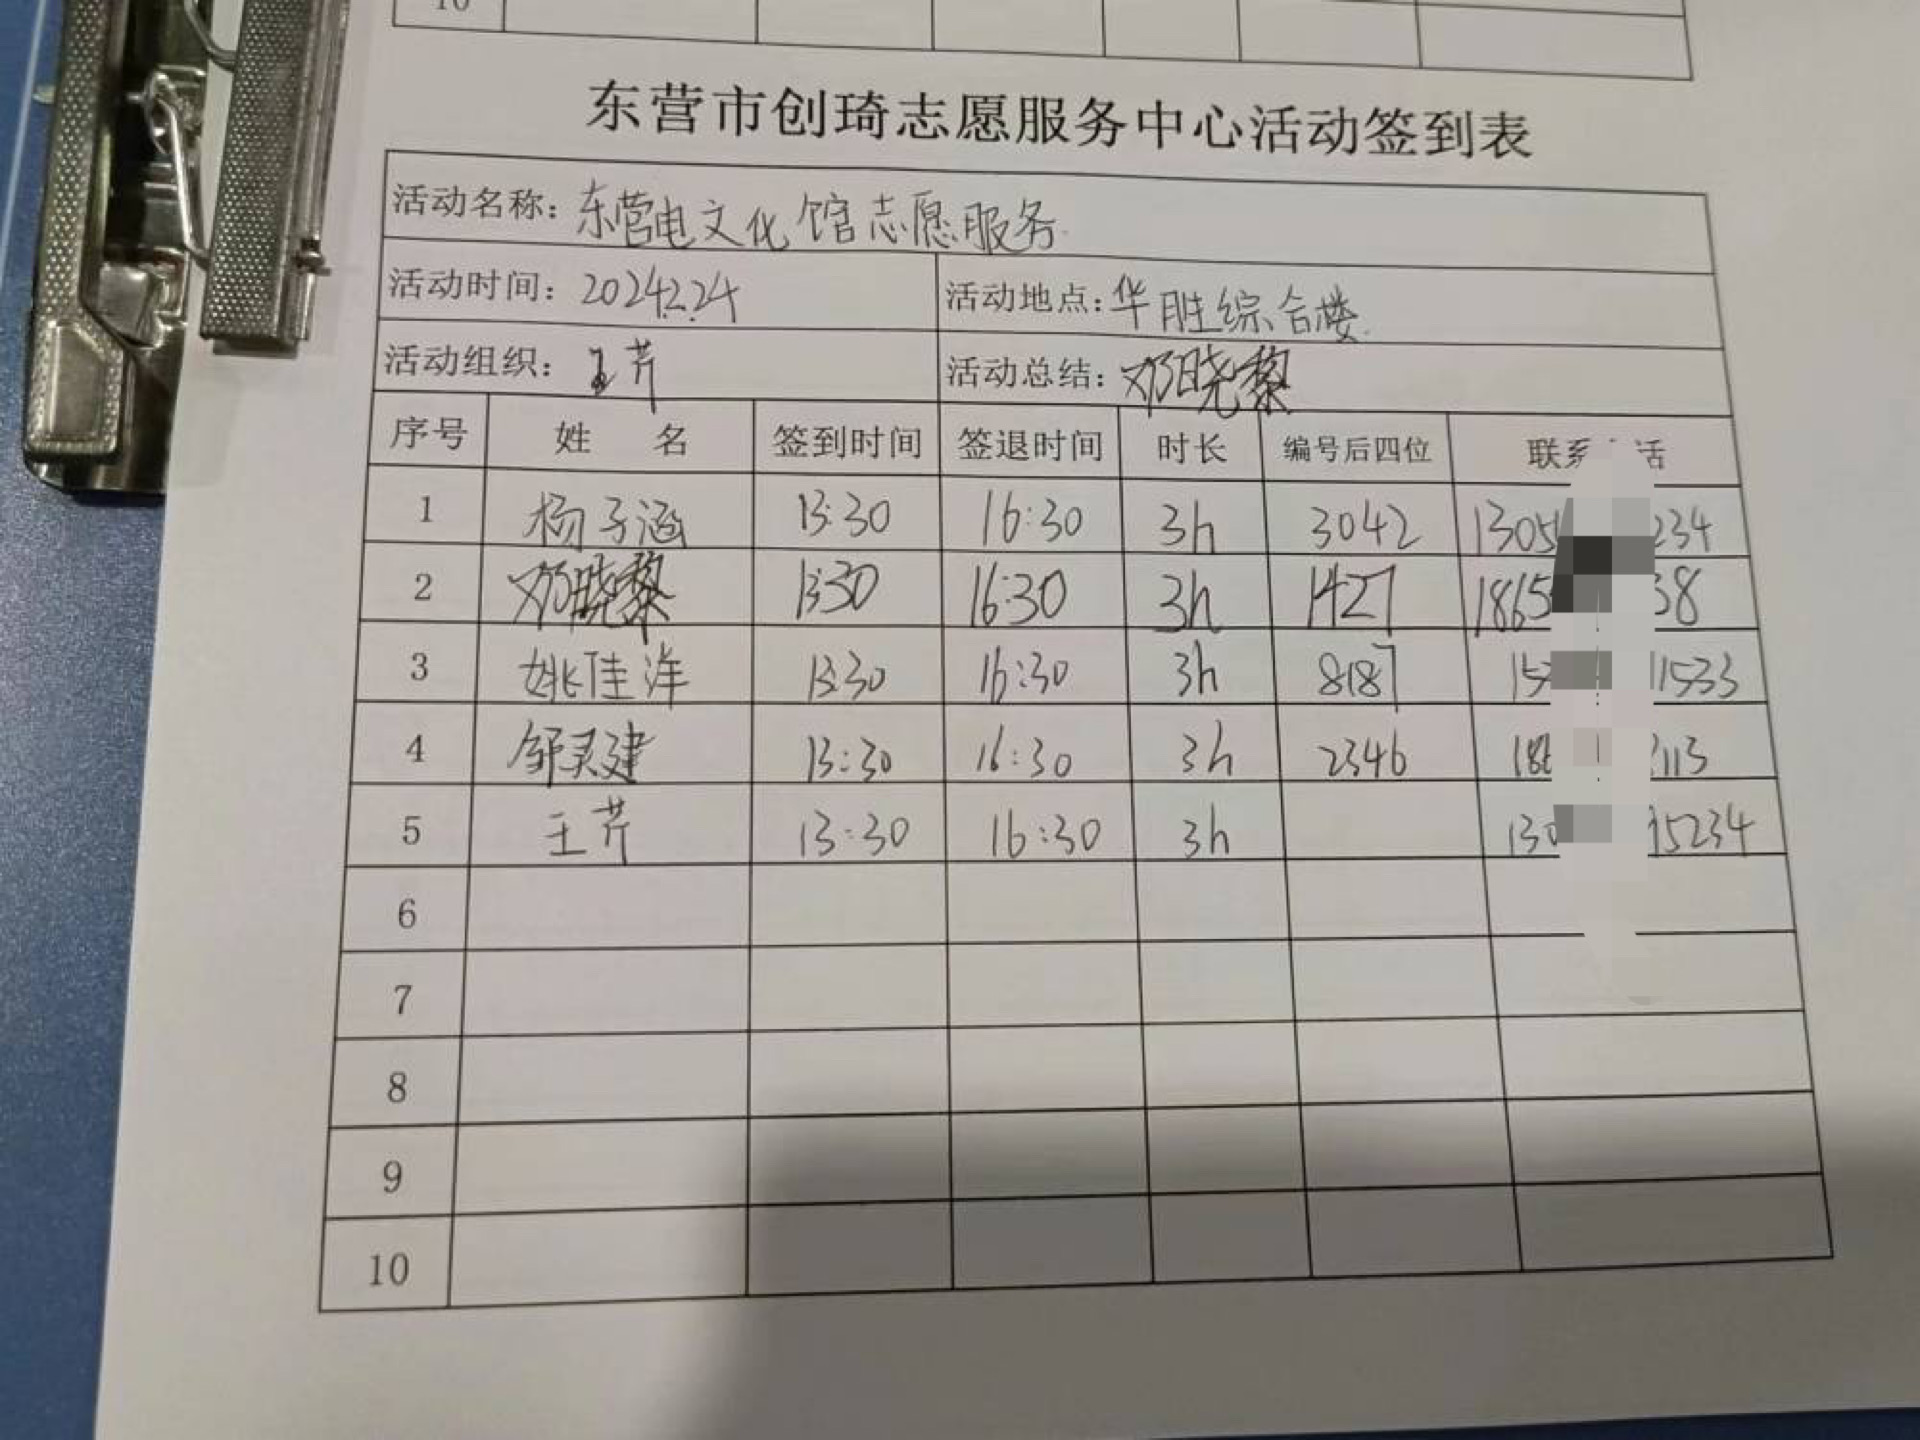 10
东营市创琦志愿服务中心活动签到表
活动名称：东营电文化馆志愿服务
活动时间：2024.2.24 活动地点：华胜综合楼
活动组织：王芹 活动总结：邓晓黎
序号 姓 名 签到时间 签退时间 时长 编号后四位 联系 话
1 杨子涵 13:30 16:30 3h 3042 1305 234
2 邓晓黎 13:30 16:30 3h 1427 1865 38
3 姚佳洋 13:30 16:30 3h 8187 15 11533
4 舒灵建 13:30 16:30 3h 2346 186 113
5 王芹 13:30 16:30 3h 130 15234
6
7
8
9
10